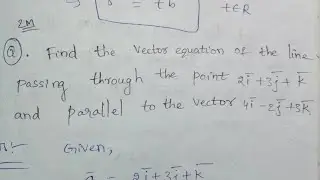 s̄ = t b̄ t∈R
2M
Q. Find the vector equation of the line
passing through the point 2ī+3j̄+k̄
and parallel to the vector 4ī-2j̄+3k̄
Given,
ā = 2ī+3j̄+k̄